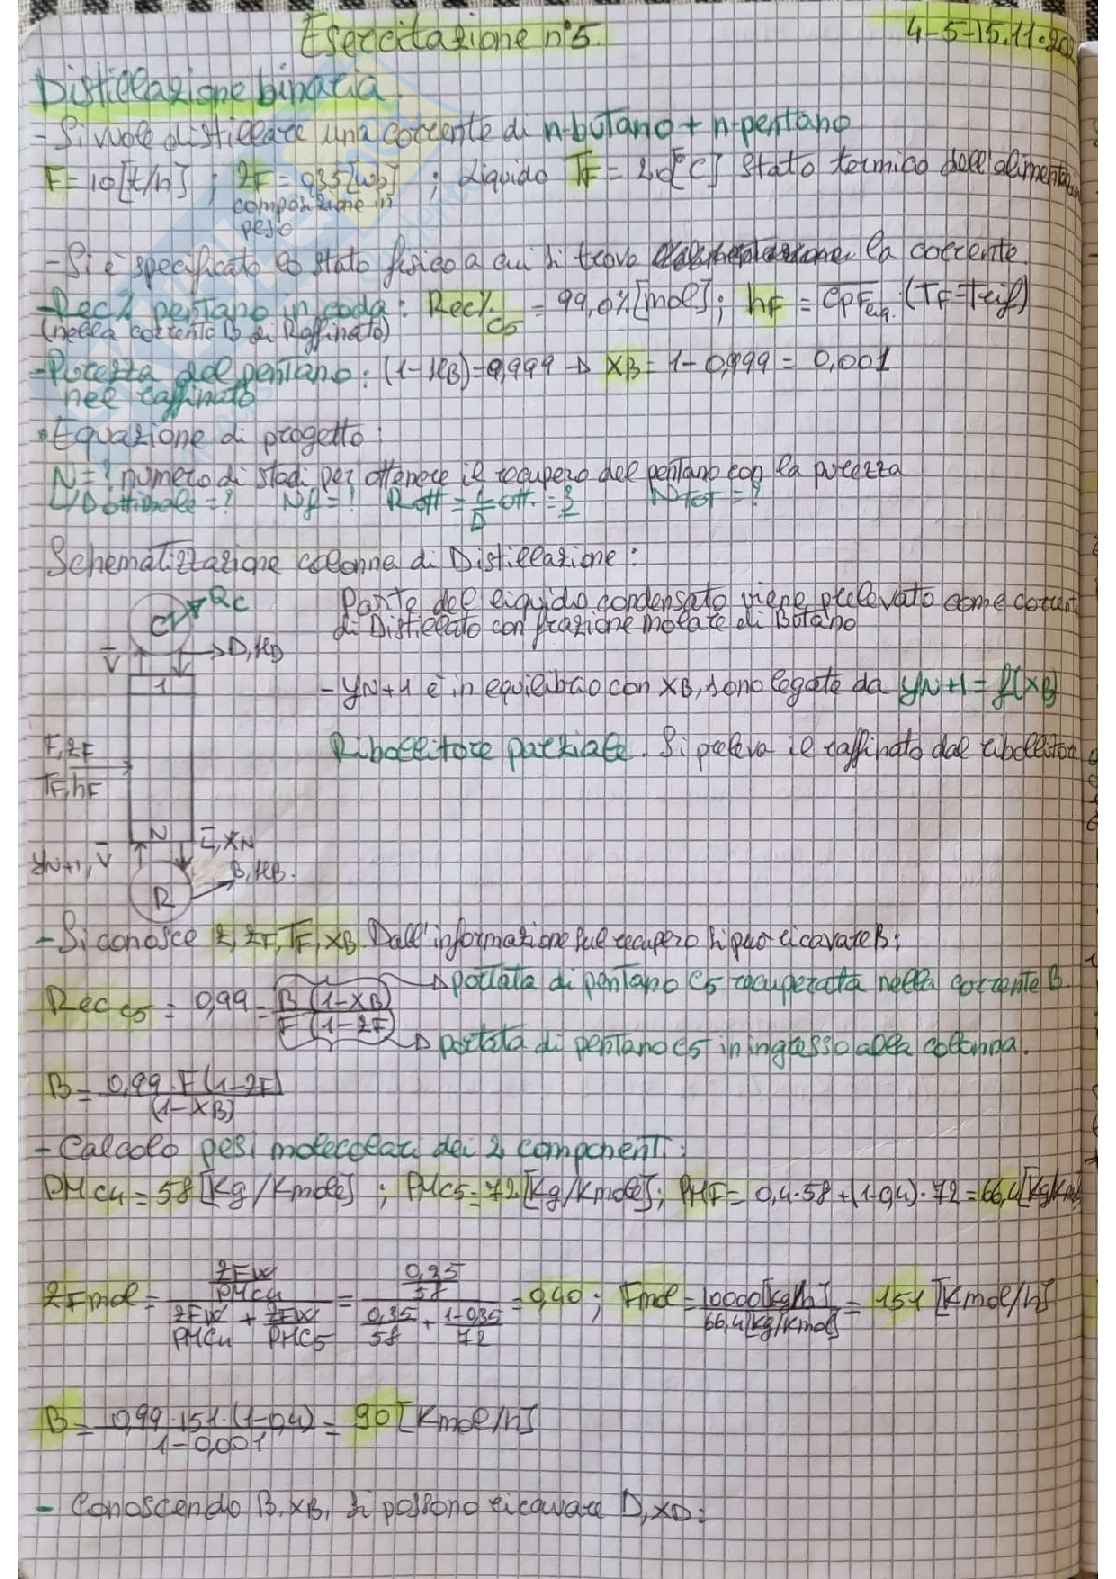 Esercitazione n°5.
4-5-15.11.202
Distillazione binaria.
- Si vuole distillare una corrente di n-butano + n-pentano
F = 10[t/h] ; ZF = 0,35[wp] ; Liquido TF = 20[°C] Stato termico dell'alimentazion
composizione in
peso
- Si è specificato lo stato fisico a cui si trova la corrente.
- Rec% pentano in coda : Rec%C5 = 99,0%[mol]; hF = CpFliq.·(TF-Trif)
(nella corrente B di Raffinato)
- Purezza del pentano : (1-XB)=0,999 → XB= 1-0,999 = 0,001
nel raffinato
• Equazione di progetto:
N=? numero di stadi per ottenere il recupero del pentano con la purezza
L/D ottimale =? Nf=? Rott = L/D ott. = ? NTOT = ?
Schematizzazione colonna di Distillazione:
C QC
Parte del liquido condensato viene prelevato come corren
di Distillato con frazione molare di Butano
V D,XD
1
- yN+1 è in equilibrio con XB, sono legate da yN+1 = f(XB)
F,ZF
Ribollitore parziale. Si preleva il raffinato dal ribollitore
TF,hF
N L̅,XN
yN+1,V̅ B,XB.
R
- Si conosce Z, ZF,TF,XB. Dall'informazione sul recupero si può ricavare B:
→ portata di pentano C5 recuperata nella corrente B.
RecC5 = 0,99 = B (1-XB) / F (1-ZF)
→ portata di pentano C5 in ingresso alla colonna.
B = 0,99·F(1-ZF) / (1-XB)
- Calcolo pesi molecolari dei 2 componenti:
PMC4 = 58 [Kg/Kmole] ; PMC5=72[Kg/Kmole]; PMF= 0,4·58+(1-0,4)·72=66,4[Kg/Kmol
ZFmol = (ZFW/PMC4) / (ZFW/PMC4 + ZFW/PMC5) = (0,35/58) / (0,35/58 + 1-0,35/72) = 0,40 ; Fmol = 10000[kg/h] / 66,4[kg/kmol] = 151 [Kmol/h]
B = 0,99·151·(1-0,4) / 1-0,001 = 90 [Kmol/h]
- Conoscendo B,XB, si possono ricavare D,XD: